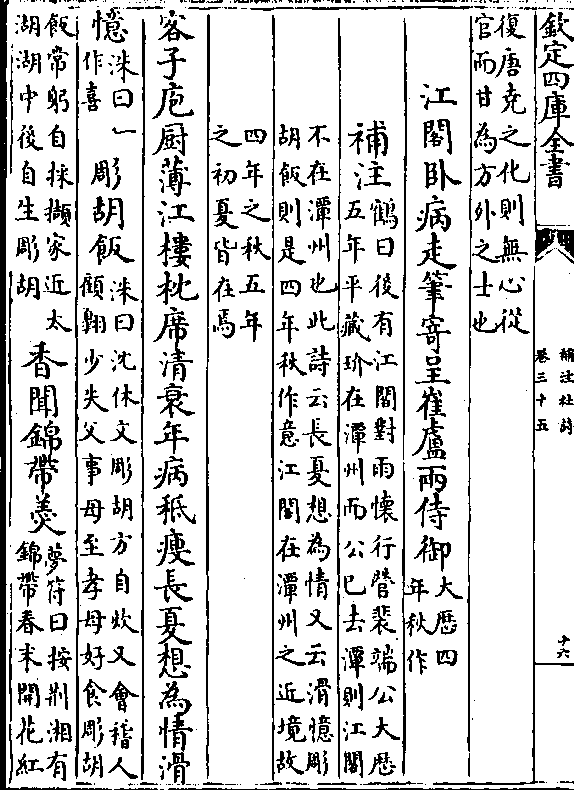 欽定四庫全書
補注杜詩
卷三十五
十六
復唐堯之化則無心從
官而甘為方外之士也
江閣卧病走筆寄呈崔盧兩侍御
大厯四
年秋作
補注
鶴曰後有江閣對雨懷行營裴端公大厯
五年平藏玠在潭州而公已去潭則江閣
不在潭州也此詩云長夏想為情又云滑憶彫
胡飯則是四年秋作意江閣在潭州之近境故
四年之秋五年
之初夏皆在焉
客子庖厨薄江樓枕席清衰年病秖瘦長夏想為情滑
憶
洙曰一
作喜
彫胡飯
洙曰沈休文彫胡方自炊又會稽人
顧翱少失父事母至孝母好食彫胡
飯常躬自採擷家近太
湖湖中後自生彫胡
香聞錦帶羹
夢符曰按荆湘有
錦帶春末開花紅